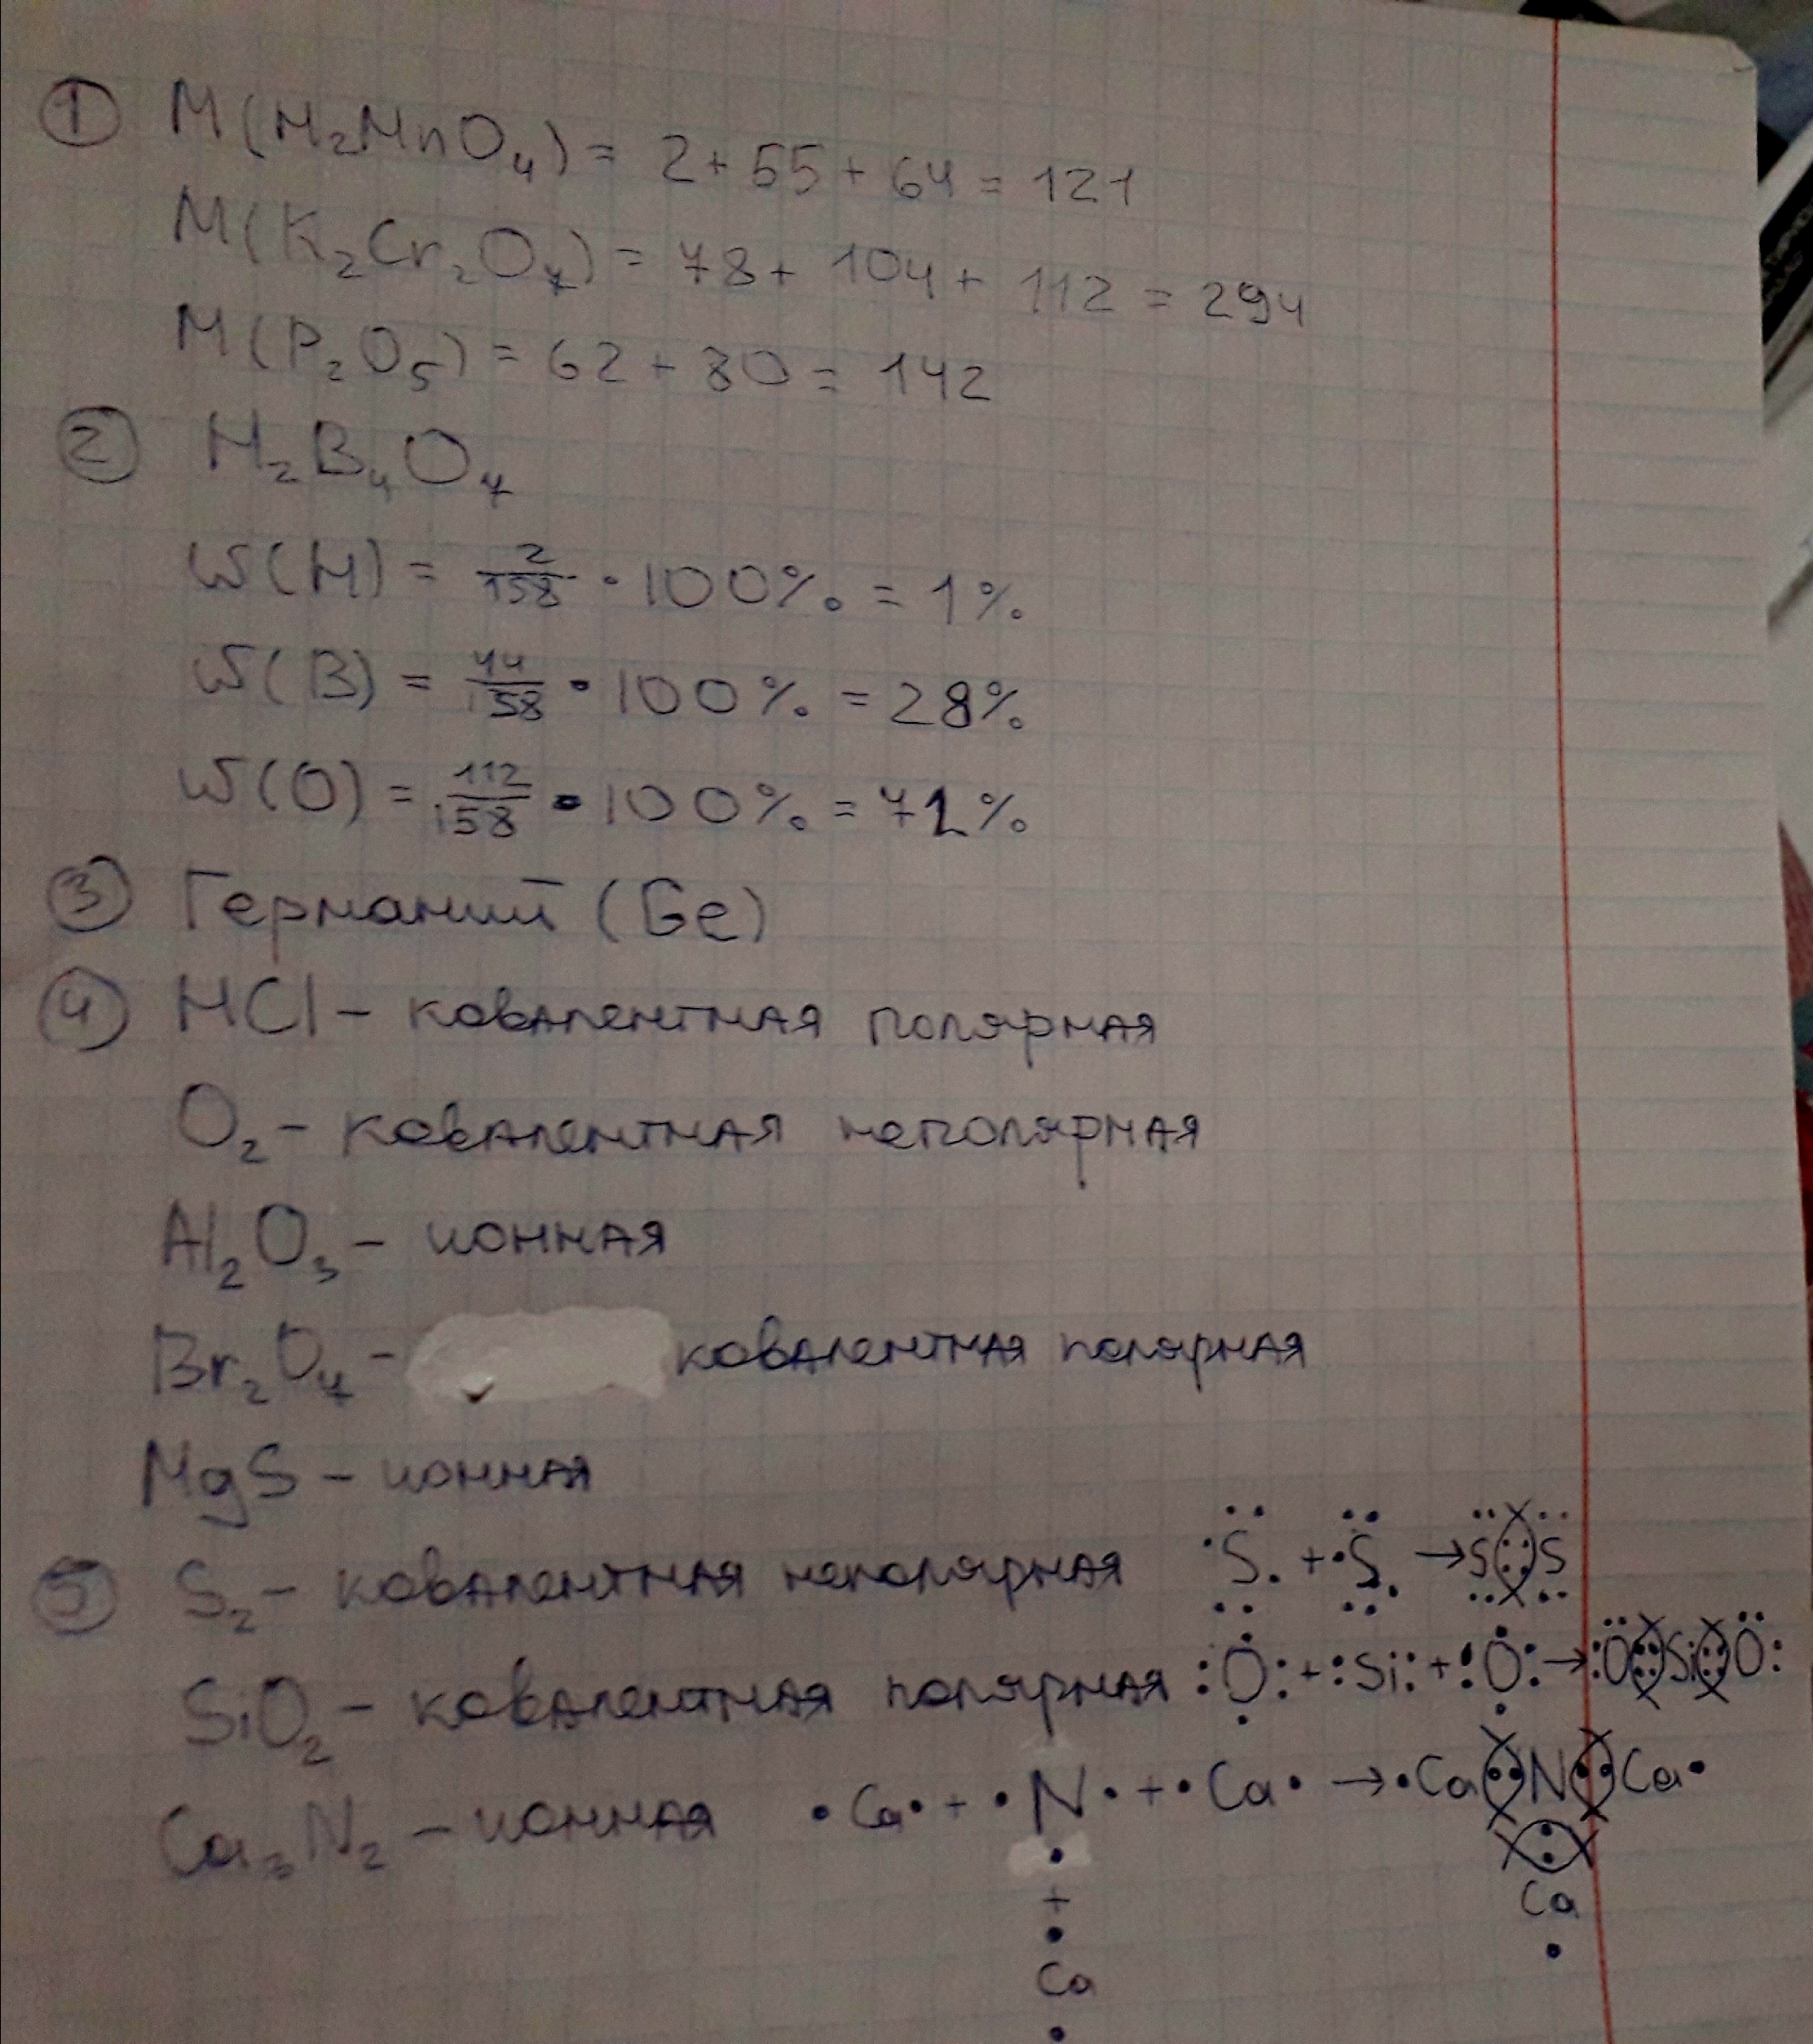 ① M(H₂MnO₄) = 2 + 55 + 64 = 121
M(K₂Cr₂O₇) = 78 + 104 + 112 = 294
M(P₂O₅) = 62 + 80 = 142
② H₂B₄O₇
W(H) = 2/158 · 100% = 1%
W(B) = 44/158 · 100% = 28%
W(O) = 112/158 · 100% = 71%
③ Германий (Ge)
④ HCl - ковалентная полярная
O₂ - ковалентная неполярная
Al₂O₃ - ионная
Br₂O₇ - ковалентная полярная
MgS - ионная
⑤ S₂ - ковалентная неполярная S + S → S S
SiO₂ - ковалентная полярная :O: + :Si: + :O: → :O::Si::O:
Ca₃N₂ - ионная ·Ca· + ·N· + ·Ca· → ·Ca:N:Ca·
+
Ca
Ca